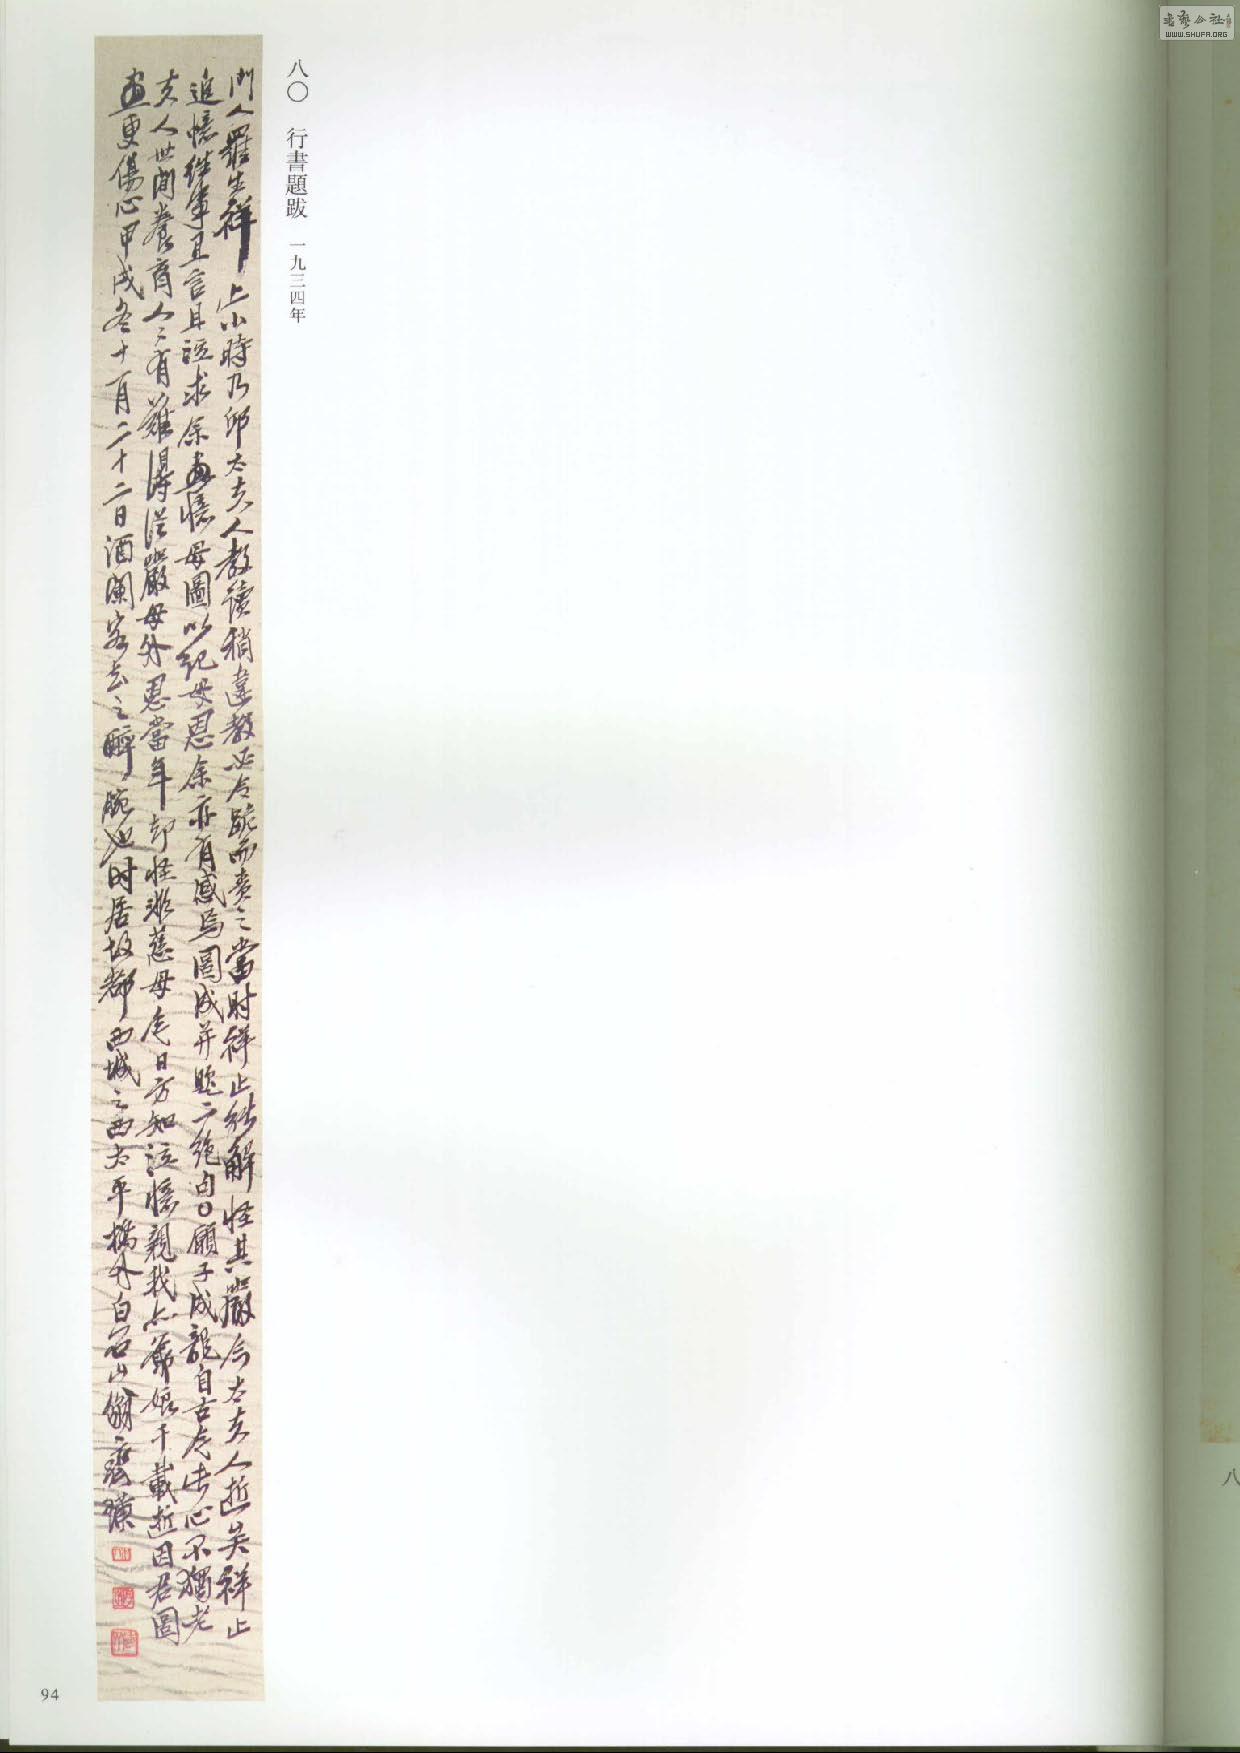 門人羅生祥止小時乃邱太夫人教讀稍違教必令跪而責之當時祥止能解怪其嚴今太夫人逝矣祥止
追憶往事且言且泣求余畫憶母圖以紀母恩余亦有感焉圖成并題二絕句〇願子成龍自古今此心不獨老
夫人世間養育人人有難得從嚴母外恩當年却怪非慈母今日方知泣憶親我亦爺娘千載逝因君圖
畫更傷心甲戌冬十月二十二日酒闌客去之醉腕也時居故都西城之西太平橋外白石山翁齊璜
八〇 行書題跋 一九三四年
94
八
書藝公社
WWW.SHUFA.ORG